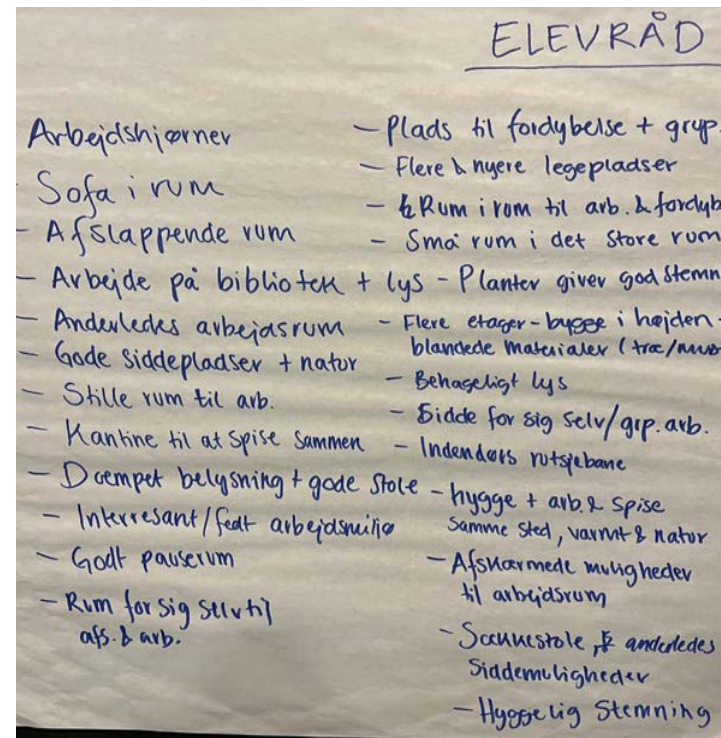 ELEVRÅD
Arbejdshjørner
- Sofa i rum
- Afslappende rum
- Arbejde på bibliotek + lys
- Anderledes arbejdsrum
- Gode siddepladser + natur
- Stille rum til arb.
- Kantine til at spise sammen
- Dæmpet belysning + gode stole
- Interresant/fedt arbejdsmiljø
- Godt pauserum
- Rum for sig selv til
afs. & arb.
- Plads til fordybelse + grup.
- Flere & nyere legepladser
- Rum i rom til arb. & fordyb
- Små rum i det store rum
- Planter giver god stemn
- Flere etager - bygge i højden -
blandede materialer (træ/mur
- Behageligt lys
- Sidde for sig selv/grp. arb.
- Indendørs rutsjebane
- hygge + arb. & spise
samme sted, varmt & natur
- Afskærmede muligheder
til arbejdsrum
- Saccusestole, & anderledes
siddemuligheder
- Hyggelig stemning